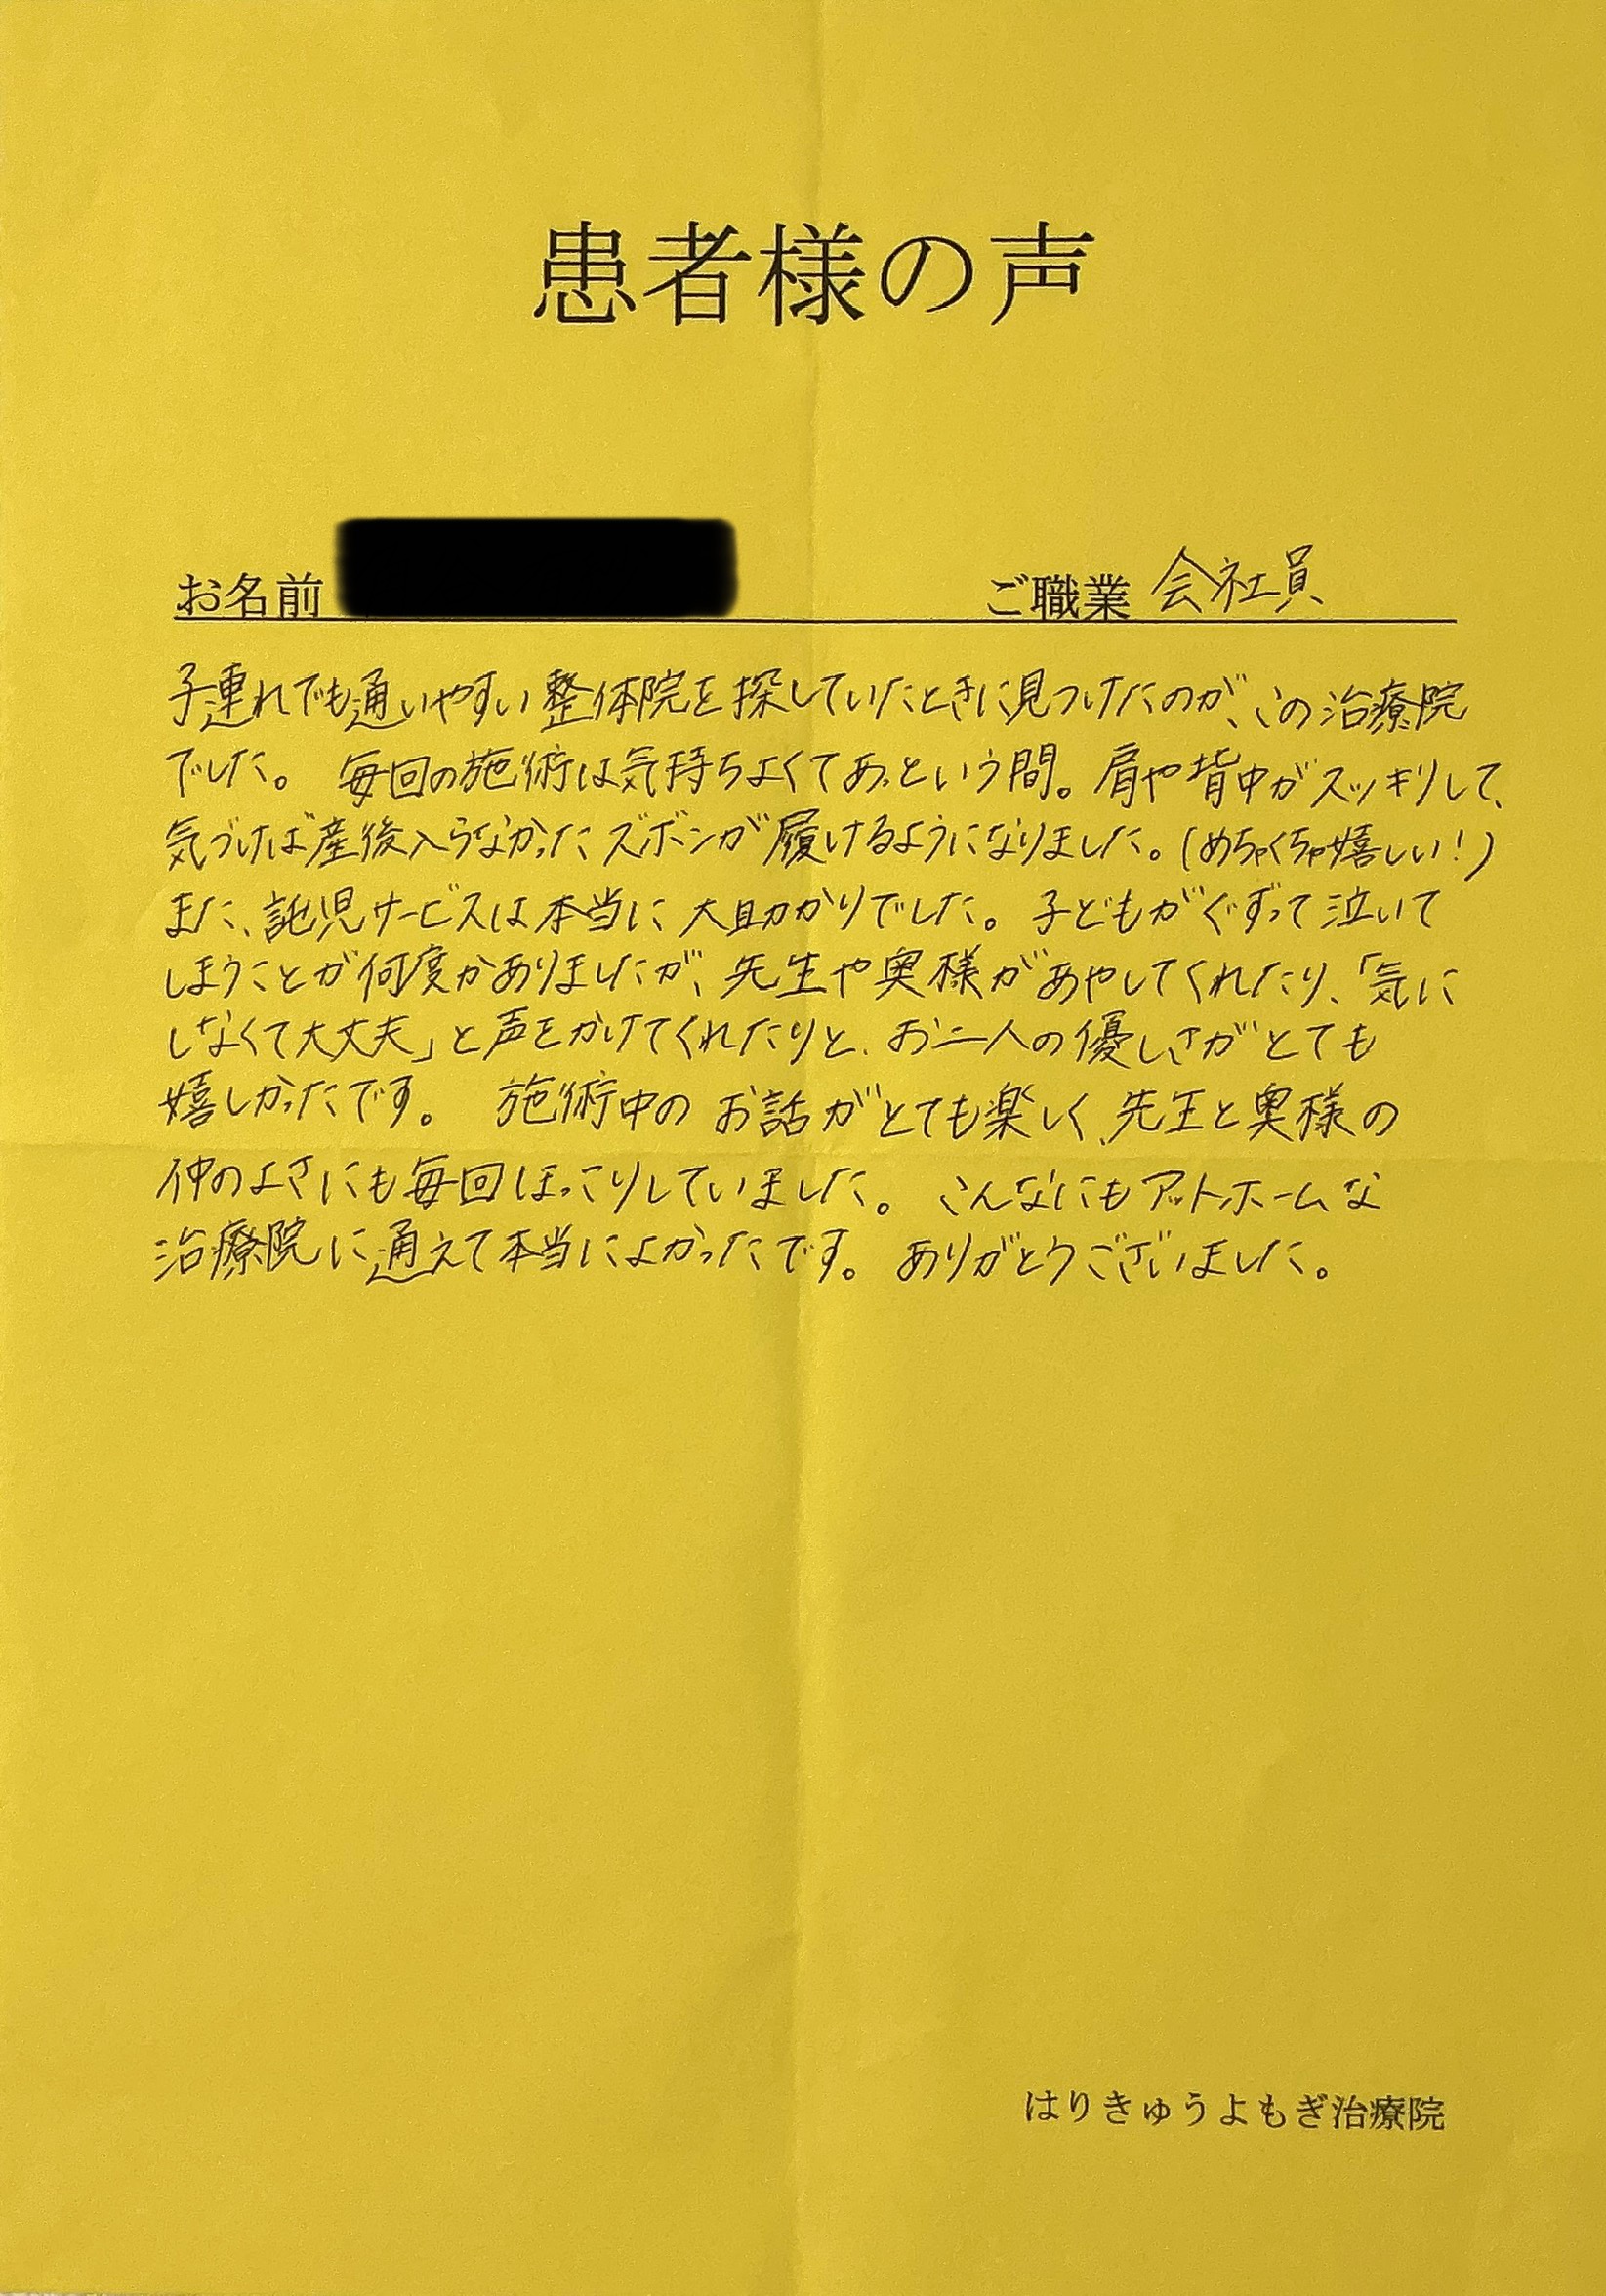 患者様の声
お名前 ご職業 会社員
子連れでも通いやすい整体院を探していたときに見つけたのが、この治療院
でした。 毎回の施術は気持ちよくてあっという間。肩や背中がスッキリして、
気づけば産後入らなかったズボンが履けるようになりました。(めちゃくちゃ嬉しい!)
また、託児サービスは本当に大助かりでした。子どもがぐずって泣いて
しまうことが何度かありましたが、先生や奥様があやしてくれたり、「気に
しなくて大丈夫」と声をかけてくれたりと、お二人の優しさがとても
嬉しかったです。 施術中のお話がとても楽しく、先生と奥様の
仲のよさにも毎回ほっこりしていました。こんなにもアットホームな
治療院に通えて本当によかったです。ありがとうございました。
はりきゅうよもぎ治療院